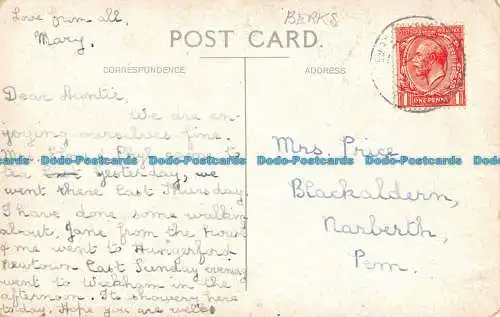 Love from all.
Mary.
BERKS
POST CARD.
CORRESPONDENCE
ADDRESS
ONE PENNY
Dear Auntie,
We are en-
joying ourselves fine.
Mrs came to
tea yesterday, we
went there Last Thursday.
I have done some walking
about. Jane from the
& me went to Hungerford
Newtown Last Sunday evening
went to Wickham in the
afternoon. It showery here
today. Hope you are well
Mrs. Price
Blackaldern,
Narberth,
Pem.
Dodo-Postcards.com Dodo-Postcards.com Dodo-Postcards.com Dodo-Postcards.com
Dodo-Postcards.com Dodo-Postcards.com Dodo-Postcards.com Dodo-Postcards.com